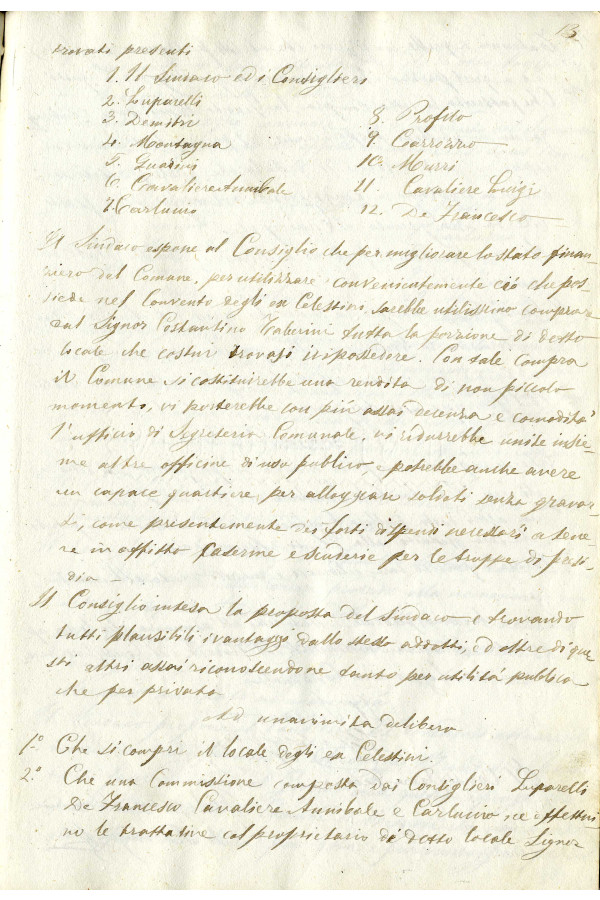 13
trovati presenti
1. Il Sindaco ed i Consiglieri
2. Luparelli
3. Demitri
4. Montagna
5. Guarini
6. Cavaliere Annibale
7. Carluccio
8. Profilo
9. Carrozzo
10. Murri
11. Cavaliere Luigi
12. De Francesco
Il Sindaco espone al Consiglio che per migliorare lo stato finan-
ziero del Comune, per utilizzare convenientemente ciò che pos-
siede nel Convento degli ex Celestini, sarebbe utilissimo comprare
dal Signor Costantino tutta la porzione di detto
locale che costui trovasi in possedere. Con tale compra
il Comune si costituirebbe una rendita di non piccolo
momento, vi porterebbe con più assai decenza e comodità
l'ufficio di Segreteria Comunale, vi ridurrebbe unite insie-
me altre officine di uso publico, e potrebbe anche avere
un capace quartiere per alloggiare soldati senza gravar-
si, come presentemente dei forti dispendi necessarî a tene-
re in affitto caserme e scuderie per le truppe di presi-
dio –
Il Consiglio intesa la proposta del Sindaco e trovando
tutti plausibili i vantaggi dallo stesso addotti, ed oltre di que
sti altri assai riconoscendone tanto per utilità pubblica
che per privata
Ad unanimità delibera
1.° Che si compri il locale degli ex Celestini.
2.° Che una Commissione composta dai Consiglieri Luparelli
De Francesco Cavaliere Annibale e Carluccio, ne effettui-
no le trattative col proprietario di detto locale Signor